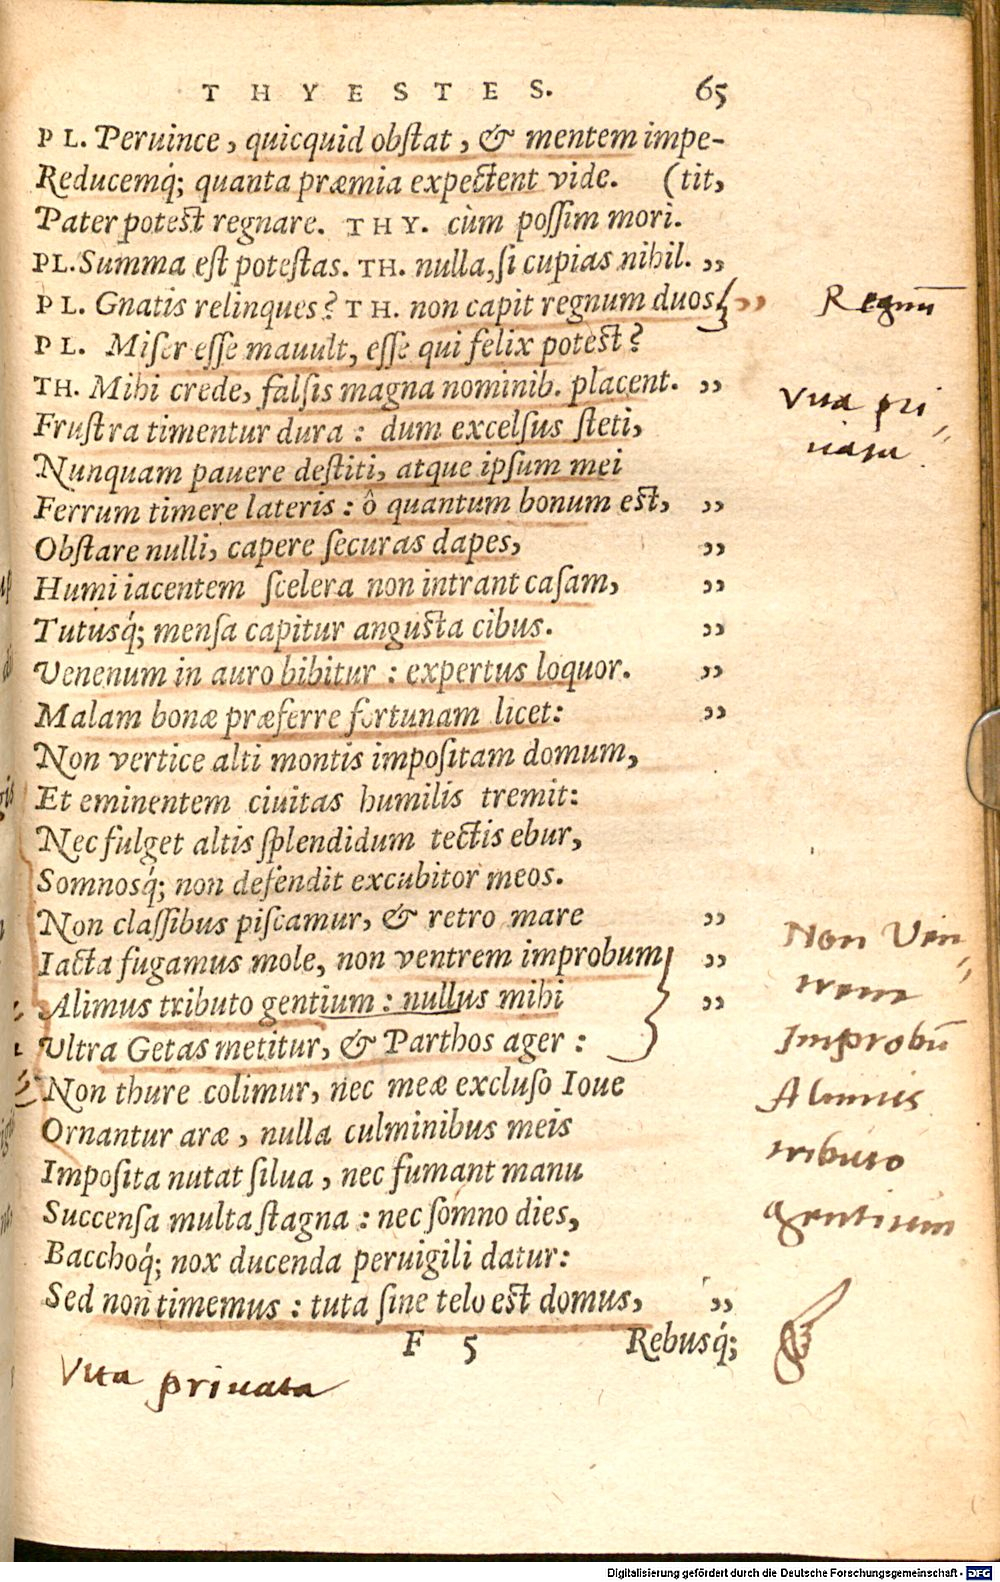 THYESTES. 65
PL. Peruince, quicquid obſtat, & mentem impe-
Reducemq́; quanta præmia expectent vide. (tit,
Pater potest regnare. THY. cùm poſſim mori.
PL. Summa eſt poteſtas. TH. nulla, ſi cupias nihil. ”
PL. Gnatis relinques? TH. non capit regnum duos. ”
Regnũ
PL. Miſer eſſe mauult, eſſe qui felix potest?
TH. Mihi crede, falſis magna nominib. placent. ”
Vita pri
Fruſtra timentur dura: dum excelſus ſteti,
uata
Nunquam pauere deſtiti, atque ipſum mei
Ferrum timere lateris: ô quantum bonum est, ”
Obſtare nulli, capere ſecuras dapes, ”
Humi iacentem ſcelera non intrant caſam, ”
Tutusq́; menſa capitur angusta cibus. ”
Venenum in auro bibitur: expertus loquor. ”
Malam bonæ præferre fortunam licet: ”
Non vertice alti montis impoſitam domum,
Et eminentem ciuitas humilis tremit:
Nec fulget altis ſplendidum tectis ebur,
Somnosq́; non defendit excubitor meos.
Non claſſibus piſcamur, & retro mare ”
Non Ven
Iacta fugamus mole, non ventrem improbum ”
trem
Alimus tributo gentium: nullus mihi ”
Vltra Getas metitur, & Parthos ager:
Improbũ
Non thure colimur, nec meæ excluſo Ioue
Alimus
Ornantur aræ, nulla culminibus meis
tributo
Impoſita nutat ſilua, nec fumant manu
Succenſa multa ſtagna: nec ſomno dies,
gentium
Bacchoq́; nox ducenda peruigili datur:
Sed non timemus: tuta ſine telo est domus, ”
F 5 Rebusq́;
Vita priuata
Digitalisierung gefördert durch die Deutsche Forschungsgemeinschaft - DFG